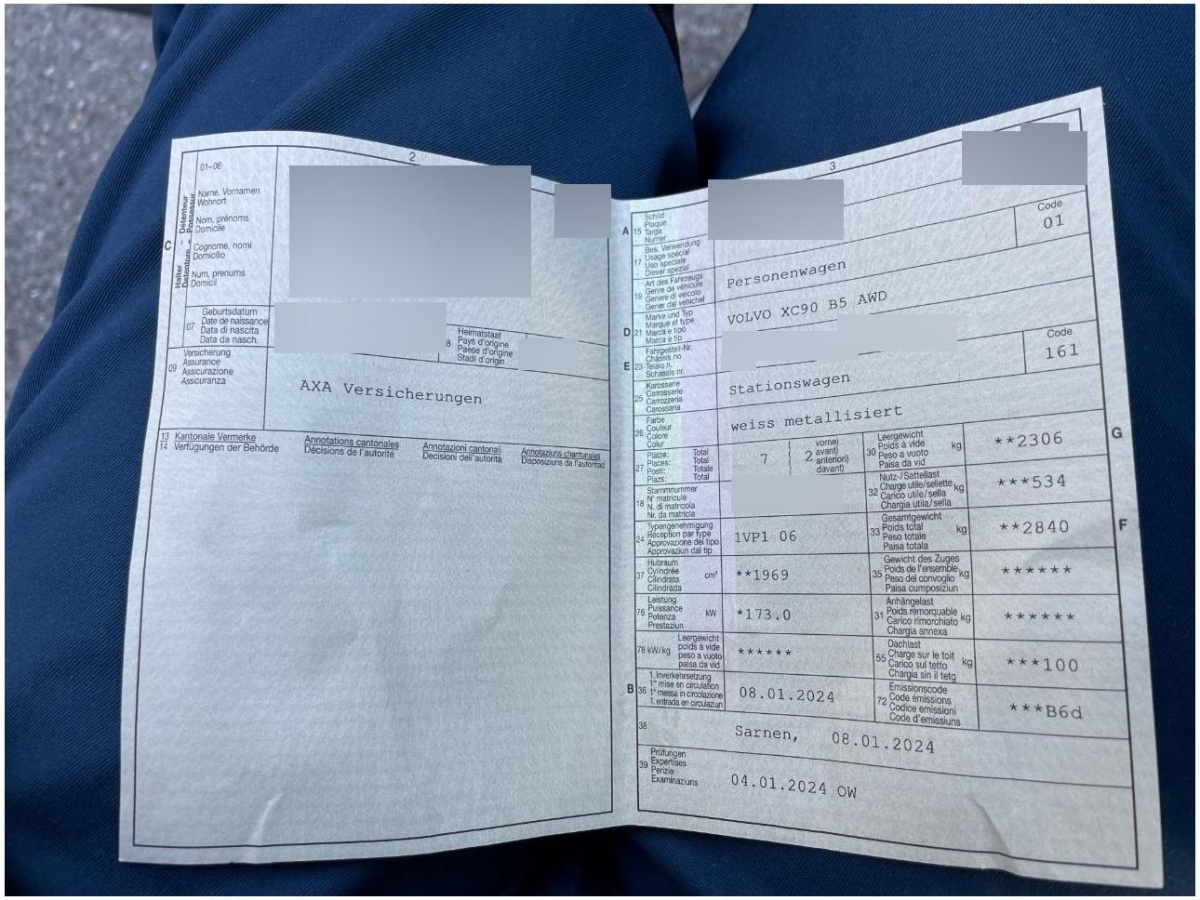 2
01-06
C
Halter
Détenteur
Detentore
Possessur
Name, Vornamen
Wohnort
Nom, prénoms
Domicile
Cognome, nomi
Domicilio
Num, prenums
Domicil
07
Geburtsdatum
Date de naissance
Data di nascita
Data da nasch.
8
Heimatstaat
Pays d'origine
Paese d'origine
Stadi d'origin
09
Versicherung
Assurance
Assicurazione
Assicuranza
AXA Versicherungen
13 Kantonale Vermerke Annotations cantonales Annotazioni cantonali Annotaziuns chantunalas
14 Verfügungen der Behörde Décisions de l'autorité Decisioni dell'autorità Disposiziuns da l'autoritad
3
A
15
Schild
Plaque
Targa
Numer
Code
17
Bes. Verwendung
Usage spécial
Uso speciale
Diever spezial
01
19
Art des Fahrzeugs
Genre de véhicule
Genere di veicolo
Gener dal vehichel
Personenwagen
D
21
Marke und Typ
Marque et type
Marca e tipo
Marca e tip
VOLVO XC90 B5 AWD
E
23
Fahrgestell-Nr.
Châssis no
Telaio n.
Schassis nr.
Code
25
Karosserie
Carrosserie
Carrozzeria
Carossaria
Stationswagen
161
26
Farbe
Couleur
Colore
Colur
weiss metallisiert
27
Plätze: Total
Places: Total
Posti: Totale
Plazs: Total
7
2
vorne)
avant)
anteriori)
davant)
30
Leergewicht
Poids à vide
Peso a vuoto
Paisa da vid
kg
**2306
G
18
Stammnummer
N° matricule
N. di matricola
Nr. da matricla
32
Nutz-/Sattellast
Charge utile/sellette
Carico utile/sella
Chargia utila/sella
kg
***534
24
Typengenehmigung
Réception par type
Approvazione del tipo
Approvaziun dal tip
1VP1 06
33
Gesamtgewicht
Poids total
Peso totale
Paisa totala
kg
**2840
F
37
Hubraum
Cylindrée
Cilindrata
Cilindrada
cm³
**1969
35
Gewicht des Zuges
Poids de l'ensemble
Peso del convoglio
Paisa cumposiziun
kg
******
76
Leistung
Puissance
Potenza
Prestaziun
kW
*173.0
31
Anhängelast
Poids remorquable
Carico rimorchiato
Chargia annexa
kg
******
78 kW/kg
Leergewicht
poids à vide
peso a vuoto
paisa da vid
******
55
Dachlast
Charge sur le toit
Carico sul tetto
Chargia sin il tetg
kg
***100
B
36
1. Inverkehrsetzung
1re mise en circulation
1a messa in circolazione
1. entrada en circulaziun
08.01.2024
72
Emissionscode
Code émissions
Codice emissioni
Code d'emissiuns
***B6d
38
Sarnen, 08.01.2024
39
Prüfungen
Expertises
Perizie
Examinaziuns
04.01.2024 OW